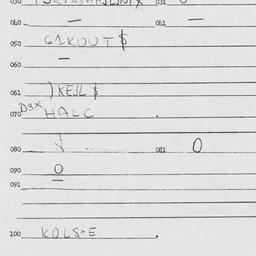 040 — 041 —
050 G1KOUT$
060 —
061 )KEJL $
070 D3X HALC .
080 081 0
090 0
091
100 KOLS+E .